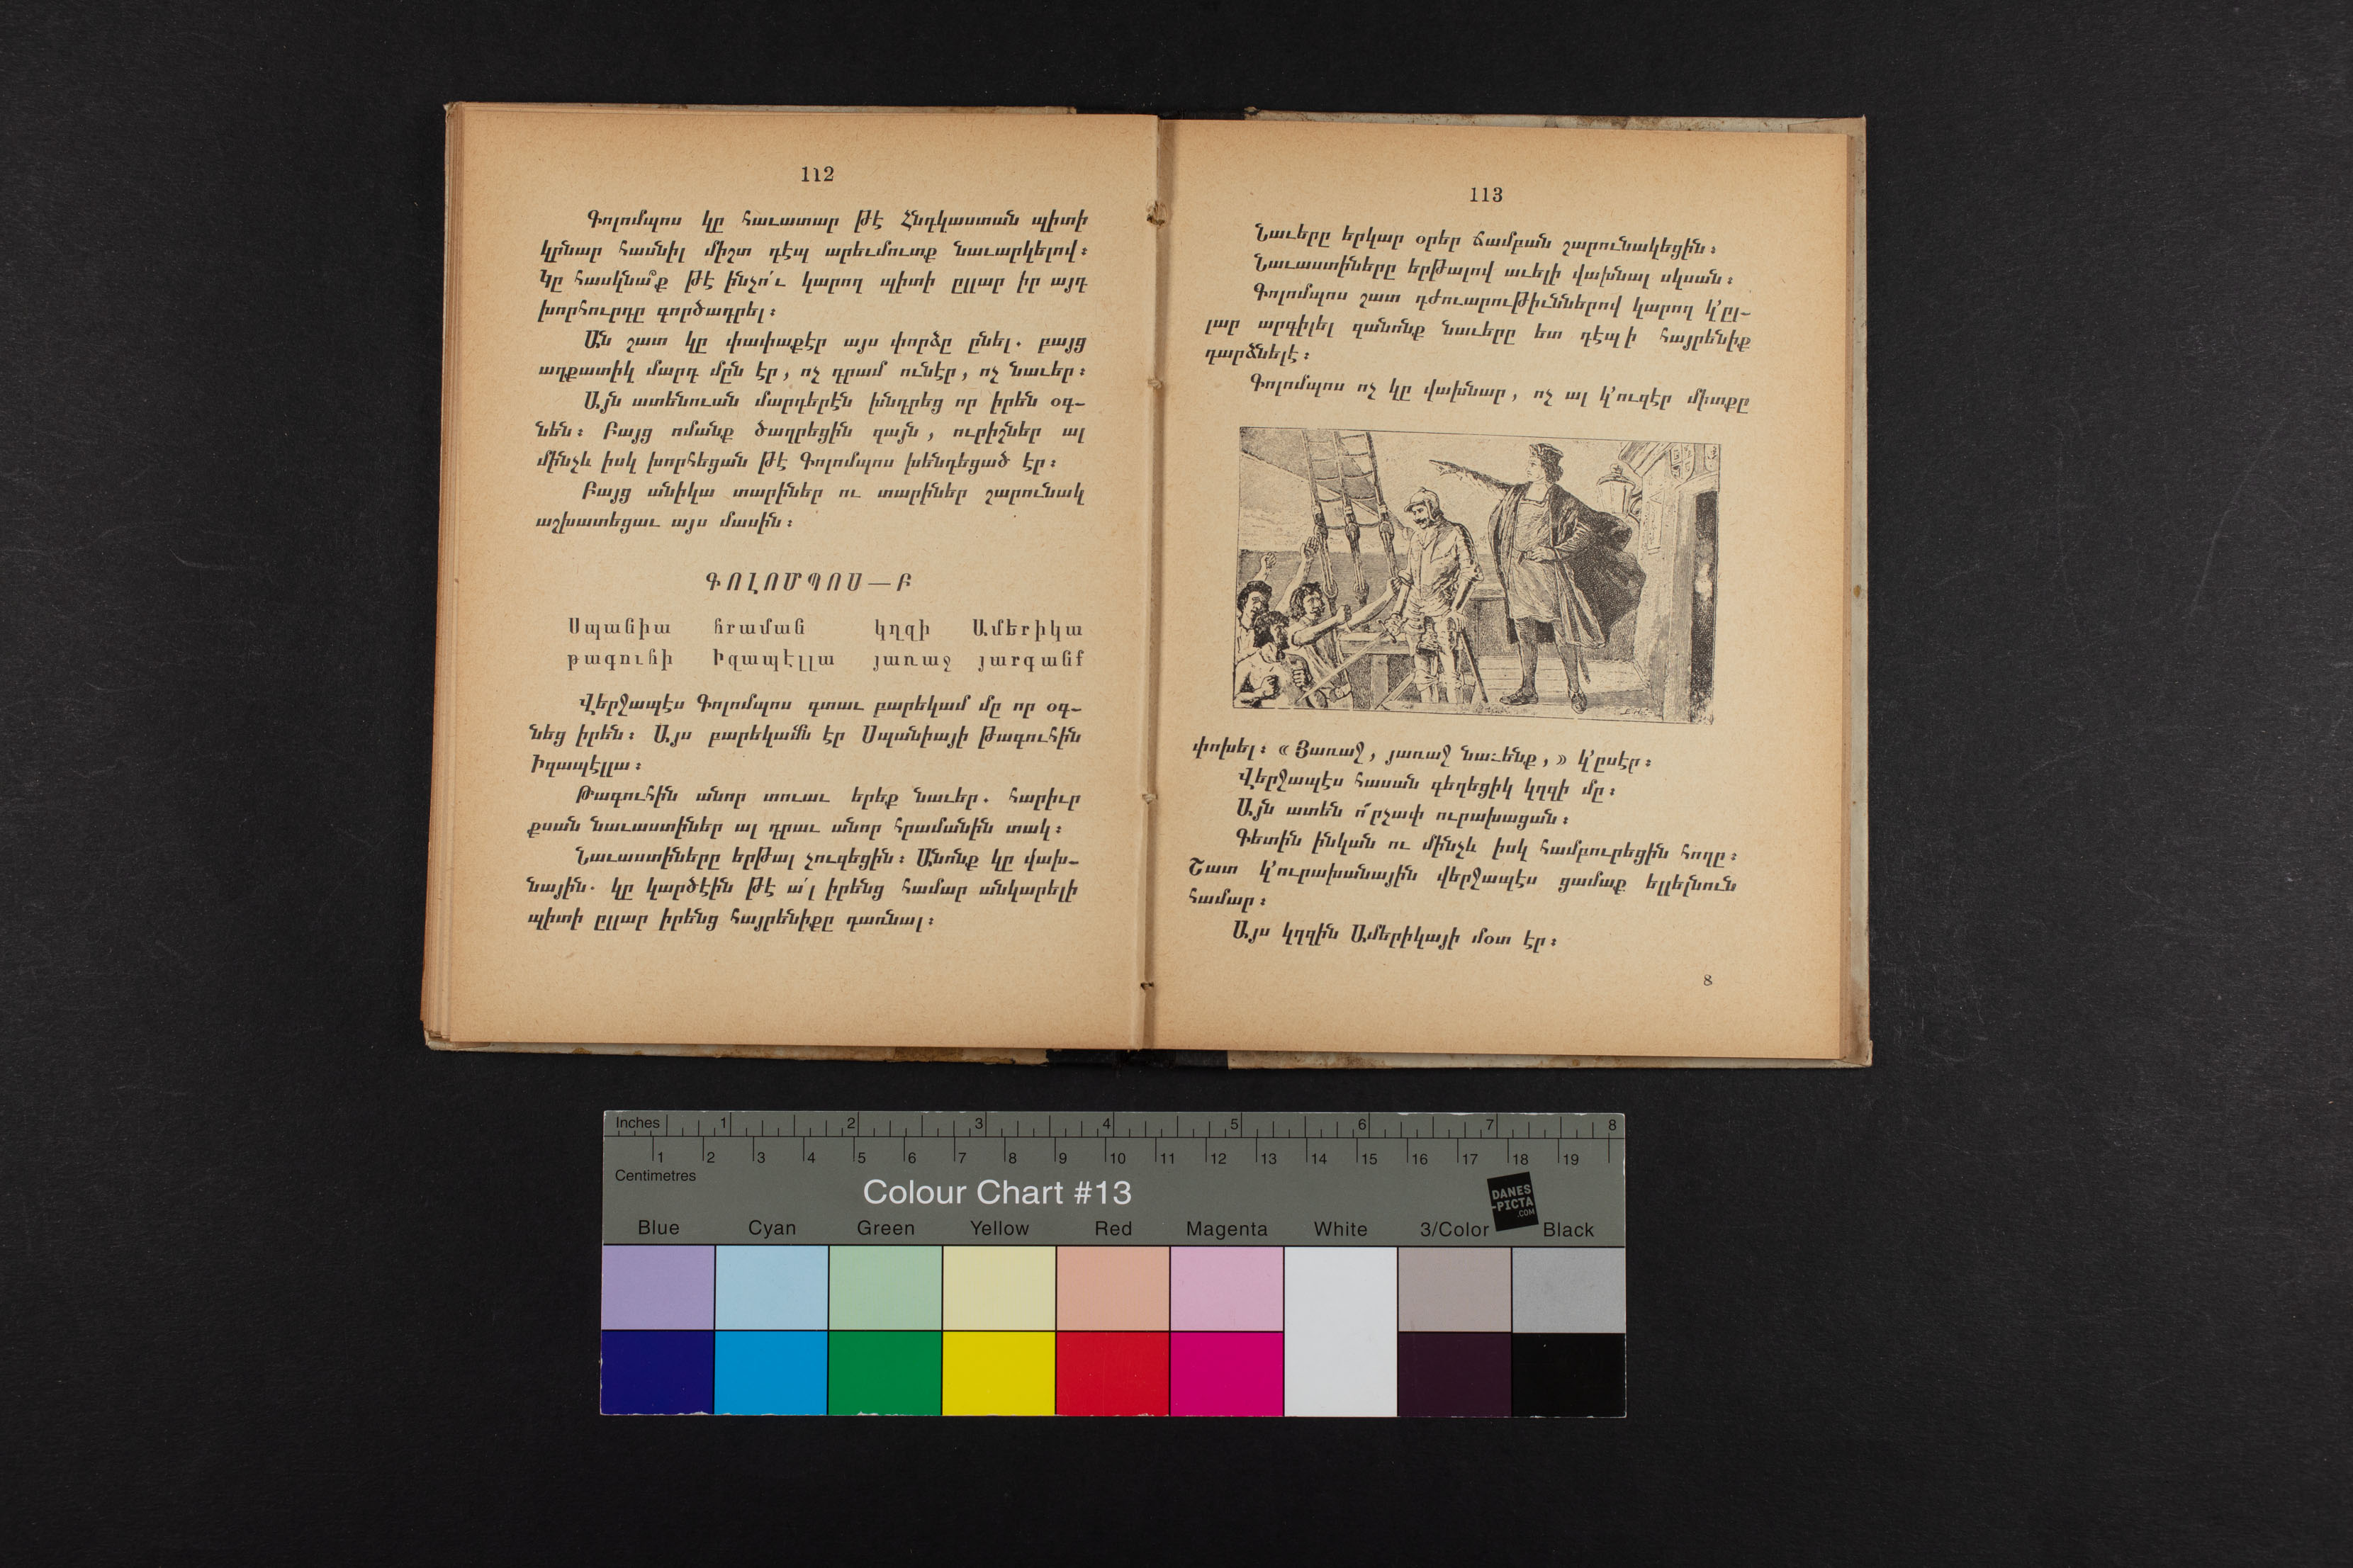 112
Գոլոմպոս կը հաւատար թէ Հնդկաստան պիտի
կրնար հասնիլ միշտ դէպ արեւմուտք նաւարկելով։
Կը հասկնա՞ք թէ ինչո՛ւ կարող պիտի ըլլար իր այդ
խորհուրդը գործադրել։
Ան շատ կը փափաքէր այս փորձը ընել. բայց
աղքատիկ մարդ մըն էր, ոչ դրամ ունէր, ոչ նաւեր։
Այն ատենուան մարդերէն խնդրեց որ իրեն օգ-
նեն։ Բայց ոմանք ծաղրեցին զայն, ուրիշներ ալ
մինչև իսկ խորհեցան թէ Գոլոմպոս խենդեցած էր։
Բայց անիկա տարիներ ու տարիներ շարունակ
աշխատեցաւ այս մասին։
ԳՈԼՈՄՊՈՍ — Բ
Սպանիա հրաման կղզի Ամերիկա
թագուհի Իզապէլլա յառաջ յարգանք
Վերջապէս Գոլոմպոս գտաւ բարեկամ մը որ օգ-
նեց իրեն։ Այս բարեկամն էր Սպանիայի թագուհին
Իզապէլլա։
Թագուհին անոր տուաւ երեք նաւեր. հարիւր
քսան նաւաստիներ ալ դրաւ անոր հրամանին տակ։
Նաւաստիները երթալ չուզեցին։ Անոնք կը վախ-
նային. կը կարծէին թէ ա՛լ իրենց համար անկարելի
պիտի ըլլար իրենց հայրենիքը դառնալ։
113
Նաւերը երկար օրեր ճամբան շարունակեցին։
Նաւաստիները երթալով աւելի վախնալ սկսան։
Գոլոմպոս շատ դժուարութիւններով կարող կ՚ըլ-
լար արգիլել զանոնք նաւերը ետ դէպ ի հայրենիք
դարձնելէ։
Գոլոմպոս ոչ կը վախնար, ոչ ալ կ՚ուզէր միտքը
փոխել։ «Յառաջ, յառաջ նաւենք,» կ՚ըսէր։
Վերջապէս հասան գեղեցիկ կղզի մը։
Այն ատեն ո՜րչափ ուրախացան։
Գետին ինկան ու մինչև իսկ համբուրեցին հողը։
Շատ կ՚ուրախանային վերջապէս ցամաք ելլելնուն
համար։
Այս կղզին Ամերիկայի մօտ էր։
8
Inches 1 2 3 4 5 6 7 8
1 2 3 4 5 6 7 8 9 10 11 12 13 14 15 16 17 18 19
Centimetres
Colour Chart #13
DANES
-PICTA
.COM
Blue Cyan Green Yellow Red Magenta White 3/Color Black